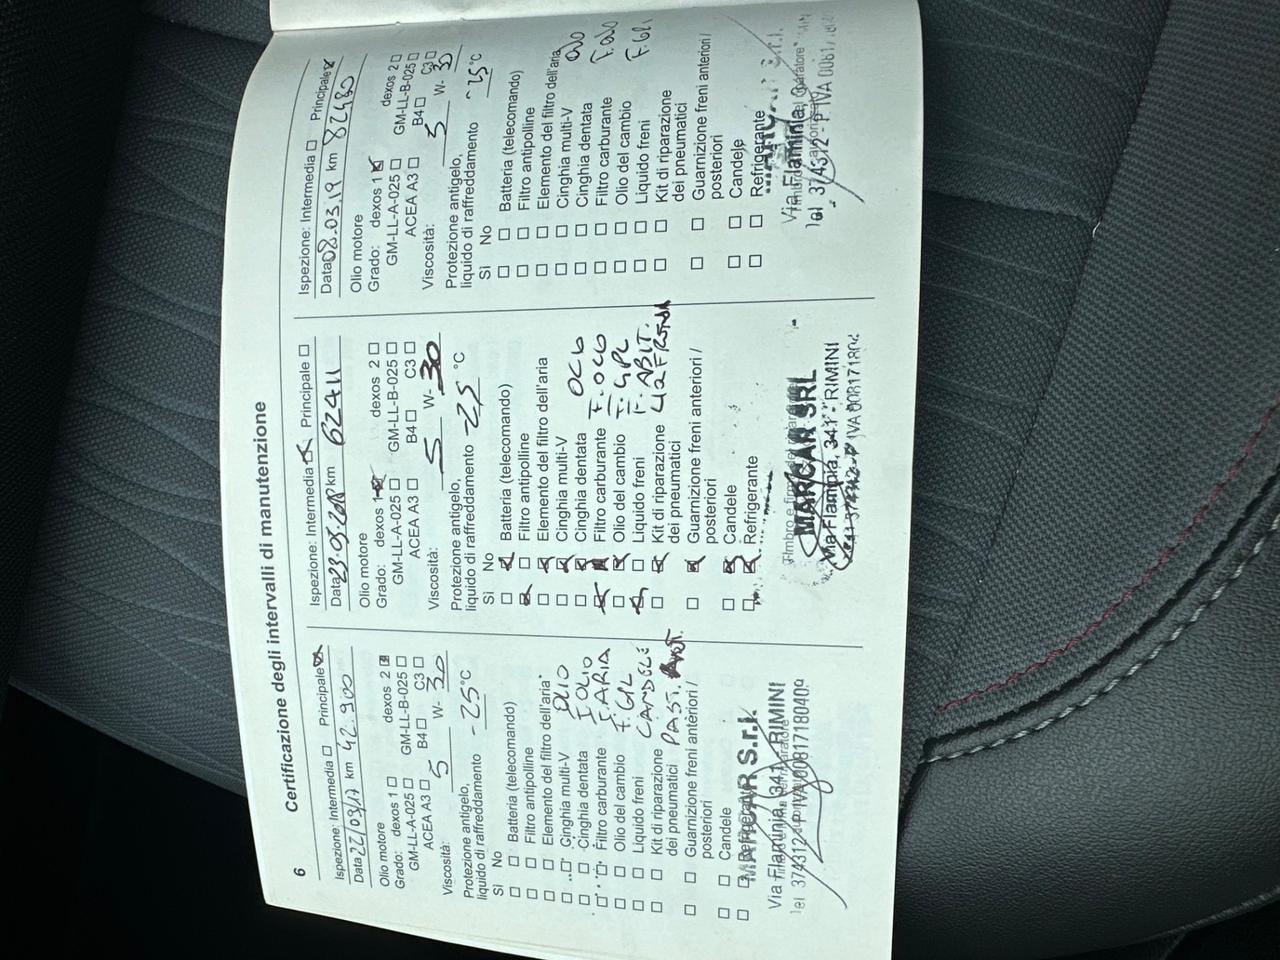 6
Certificazione degli intervalli di manutenzione
Ispezione: Intermedia Principale
Data 22/03/17 km 42.900
Olio motore
Grado: dexos 1 dexos 2
GM-LL-A-025 GM-LL-B-025
ACEA A3 B4 C3
Viscosità: 5 W- 30
Protezione antigelo,
liquido di raffreddamento -25 °C
Sì No
Batteria (telecomando)
Filtro antipolline
Elemento del filtro dell'aria
Cinghia multi-V OLIO
Cinghia dentata F. OLIO
Filtro carburante F. ARIA
Olio del cambio
Liquido freni CANDELE
Kit di riparazione
dei pneumatici PAST. ANT.
Guarnizione freni anteriori /
posteriori
Candele
MARCAR S.r.l.
Via Flaminia, 341 RIMINI
Tel 374312 P. IVA 00817180409
Ispezione: Intermedia Principale
Data 23.03.2018 km 62411
Olio motore
Grado: dexos 1 dexos 2
GM-LL-A-025 GM-LL-B-025
ACEA A3 B4 C3
Viscosità: 5 W- 30
Protezione antigelo,
liquido di raffreddamento -25 °C
Sì No
Batteria (telecomando)
Filtro antipolline
Elemento del filtro dell'aria
Cinghia multi-V
Cinghia dentata
Filtro carburante
Olio del cambio F. GPL
Liquido freni F. ABIT.
Kit di riparazione
dei pneumatici
Guarnizione freni anteriori /
posteriori
Candele
Refrigerante
MARCAR SRL
Via Flaminia, 341 - RIMINI
Ispezione: Intermedia Principale
Data 08.03.19 km 82480
Olio motore
Grado: dexos 1 dexos 2
GM-LL-A-025 GM-LL-B-025
ACEA A3 B4 C3
Viscosità: 5 W- 30
Protezione antigelo,
liquido di raffreddamento -25 °C
Sì No
Batteria (telecomando)
Filtro antipolline
Elemento del filtro dell'aria
Cinghia multi-V
Cinghia dentata
Filtro carburante
Olio del cambio
Liquido freni
Kit di riparazione
dei pneumatici
Guarnizione freni anteriori /
posteriori
Candele
Refrigerante
Via Flaminia,
Tel 374312 - P. IVA